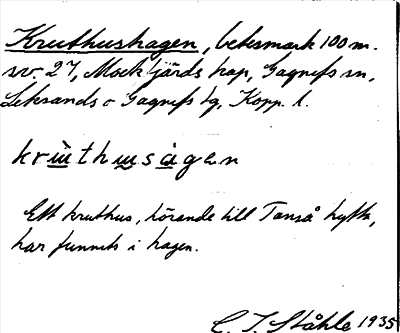 Kruthushagen, betesmark 100 m.
sv. 27, Mockfjärds kap, Gagnefs sn,
Leksands o Gagnefs tg, Kopp. l.
krùthusàgen
Ett kruthus, hörande till Tanså hytta,
har funnits i hagen.
C. I. Ståhle 1935